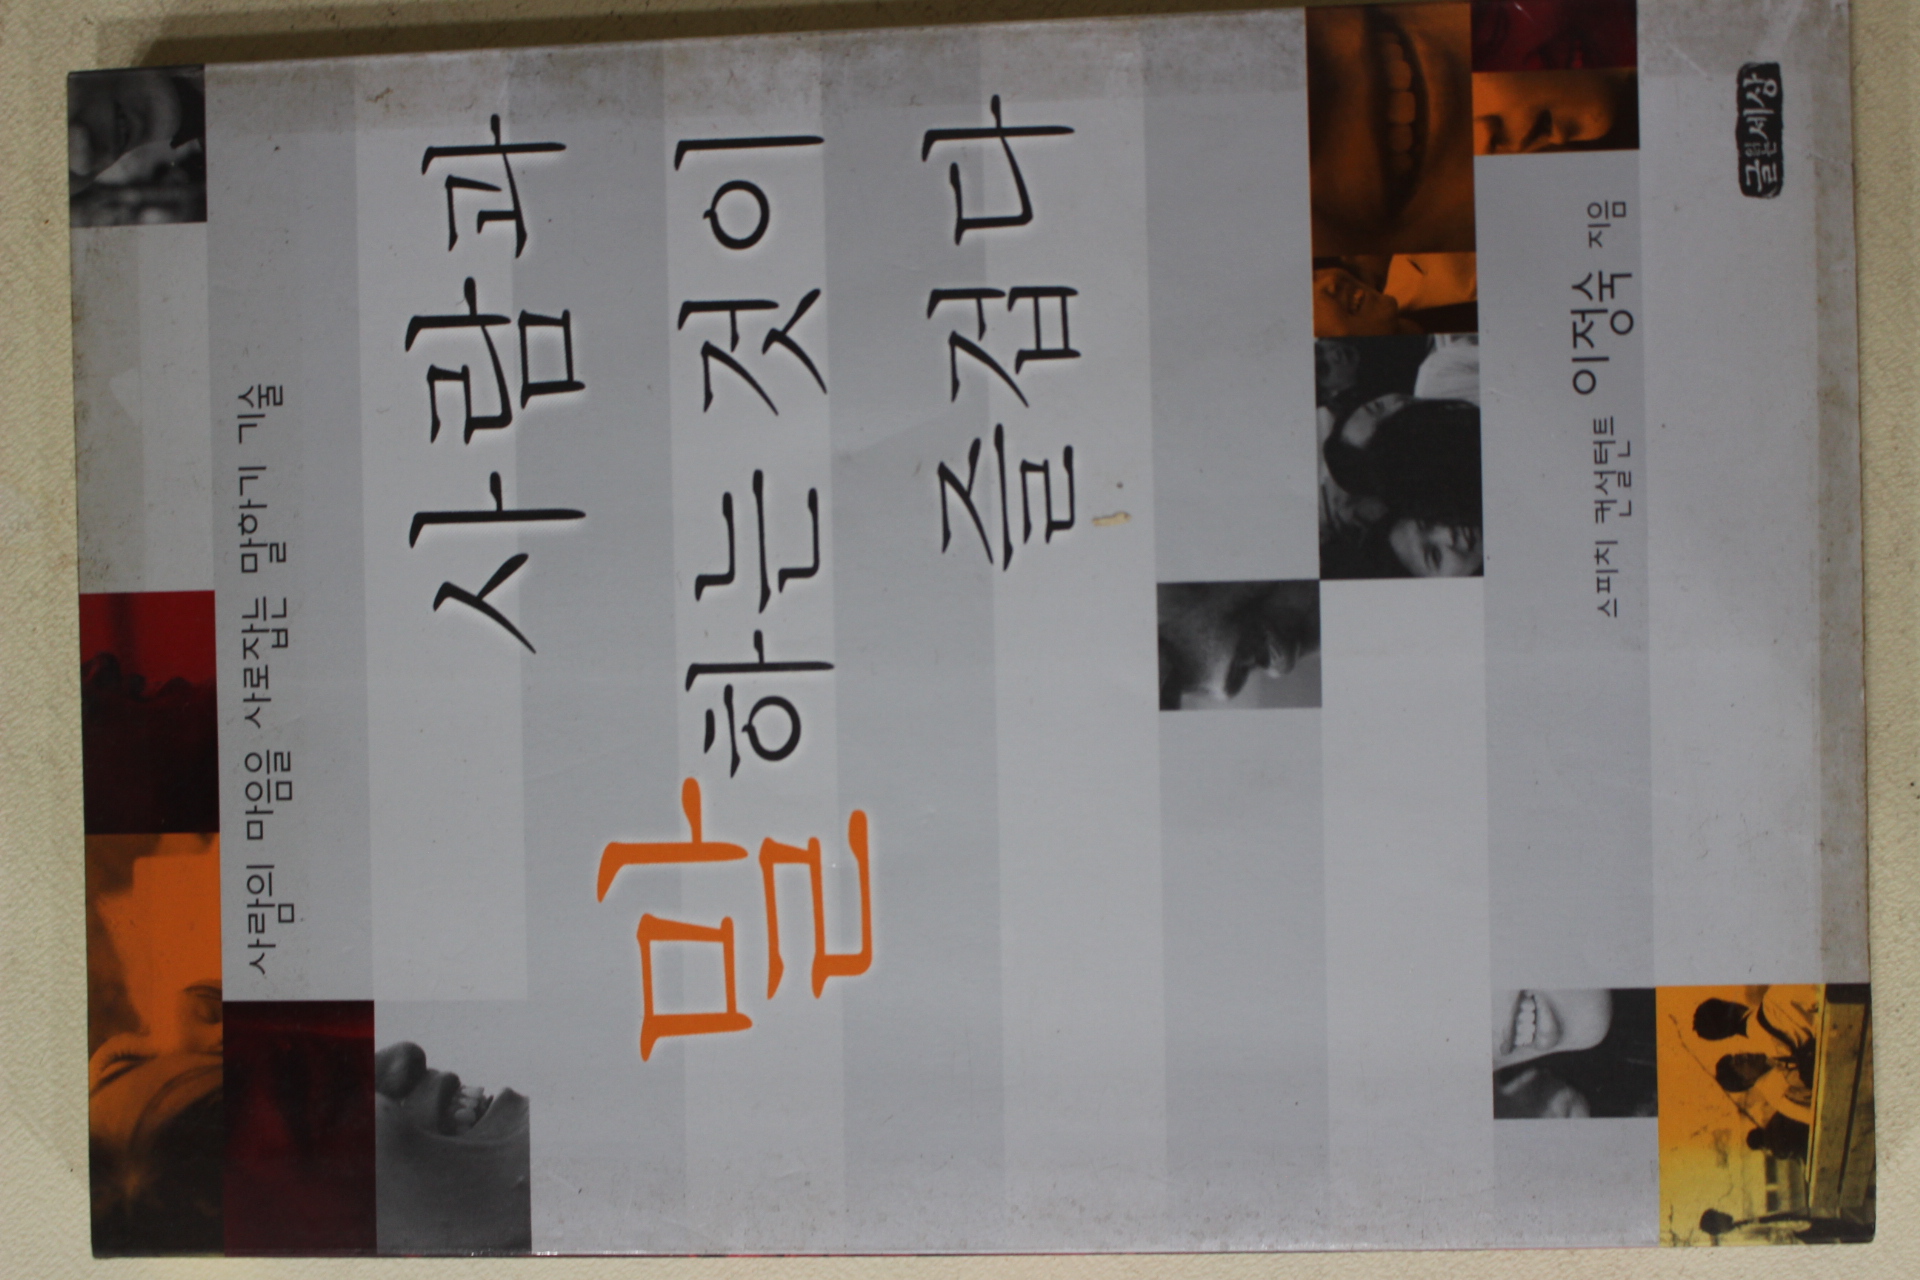 사람의 마음을 사로잡는 말하기 기술
사람과
말하는 것이
즐겁다
스피치 컨설턴트 이정숙 지음
글읽는세상